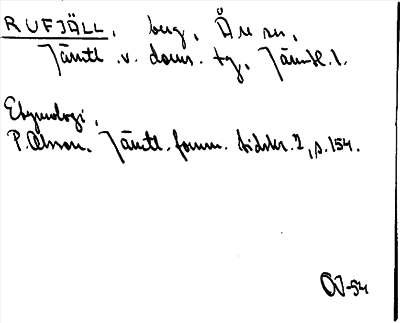 RUFJÄLL, berg, Åre sn,
Jämtl. v. doms. tg, Jämtl. l.
Etymologi,
P. Olsson. Jämtl. fornm. tidskr. 2, s. 154.
OJ-54